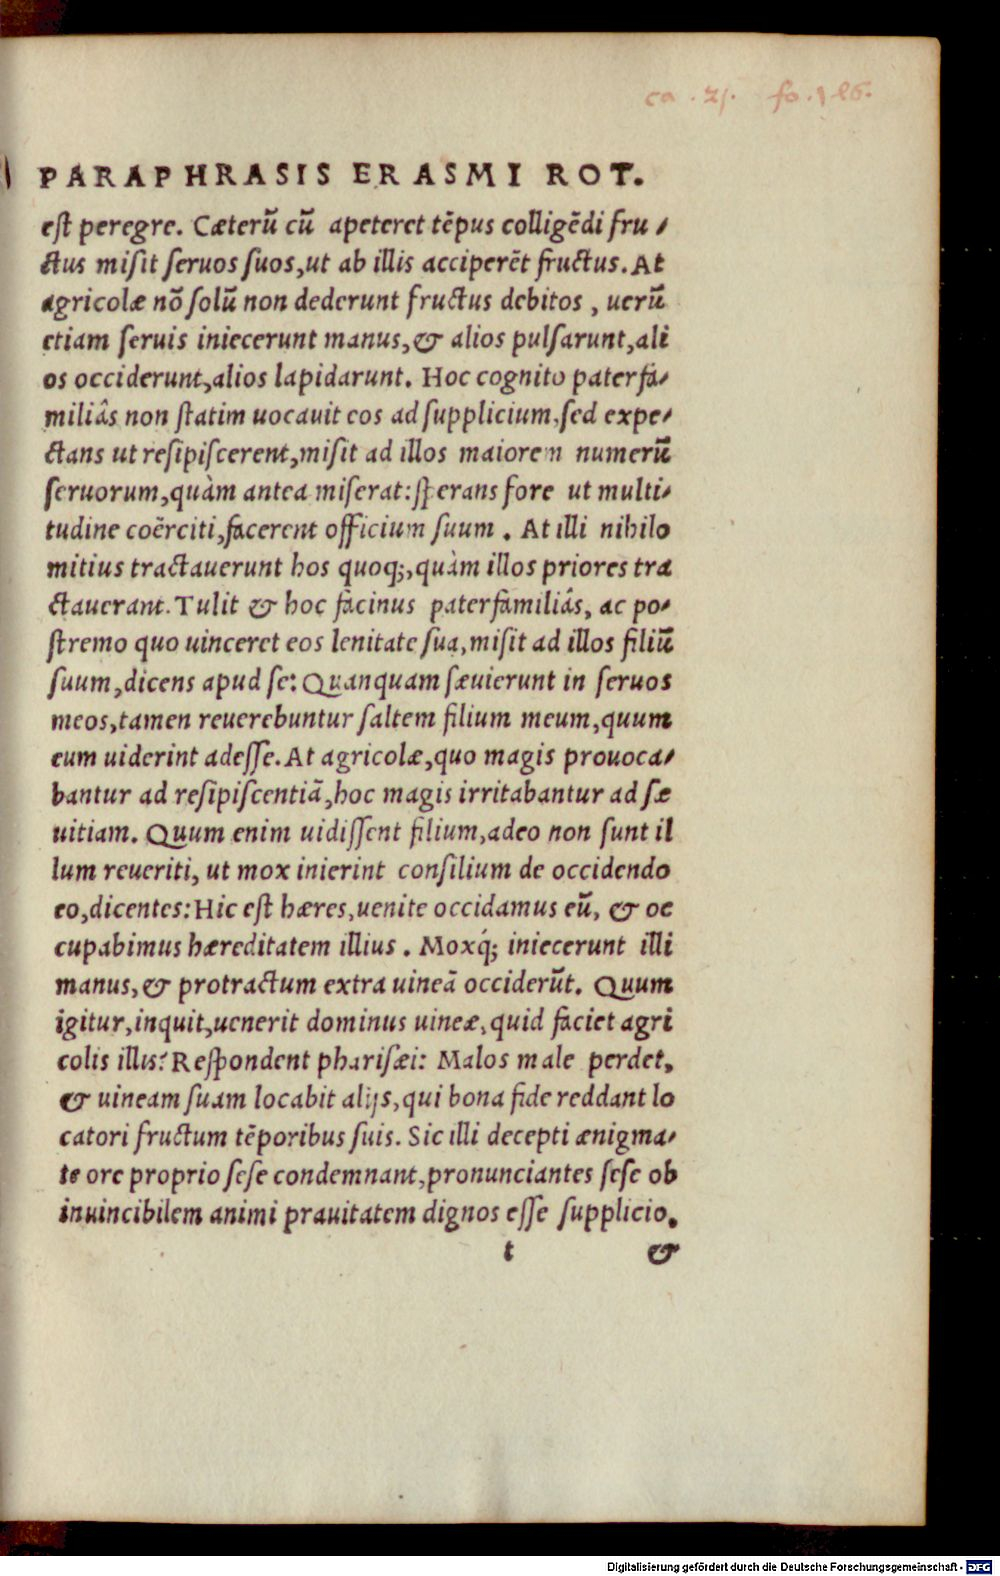 ca . 21. fo. 186.
PARAPHRASIS ERASMI ROT.
est peregre. Cæterũ cũ apeteret tẽpus colligẽdi fru⸗
ctus misit seruos suos, ut ab illis acciperẽt fructus. At
agricolæ nõ solũ non dederunt fructus debitos , uerũ
etiam seruis iniecerunt manus, & alios pulsarunt, ali
os occiderunt, alios lapidarunt. Hoc cognito paterfa⸗
miliâs non statim uocauit eos ad supplicium, sed expe⸗
ctans ut resipiscerent, misit ad illos maiorem numerũ
seruorum, quàm antea miserat: sperans fore ut multi⸗
tudine coërciti, facerent officium suum . At illi nihilo
mitius tractauerunt hos quoq;, quàm illos priores tra
ctauerant. Tulit & hoc facinus paterfamiliâs, ac po⸗
stremo quo uinceret eos lenitate sua, misit ad illos filiũ
suum, dicens apud se: Quanquam sæuierunt in seruos
meos, tamen reuerebuntur saltem filium meum, quum
eum uiderint adesse. At agricolæ, quo magis prouoca⸗
bantur ad resipiscentiã, hoc magis irritabantur ad sæ
uitiam. Quum enim uidissent filium, adeo non sunt il
lum reueriti, ut mox inierint consilium de occidendo
eo, dicentes: Hic est hæres, uenite occidamus eũ, & oc
cupabimus hæreditatem illius . Moxq́; iniecerunt illi
manus, & protractum extra uineã occiderũt. Quum
igitur, inquit, uenerit dominus uineæ, quid faciet agri
colis illis? Respondent pharisæi: Malos male perdet,
& uineam suam locabit alijs, qui bona fide reddant lo
catori fructum tẽporibus suis. Sic illi decepti ænigma⸗
te ore proprio sese condemnant, pronunciantes sese ob
inuincibilem animi prauitatem dignos esse supplicio.
t &
Digitalisierung gefördert durch die Deutsche Forschungsgemeinschaft - DFG